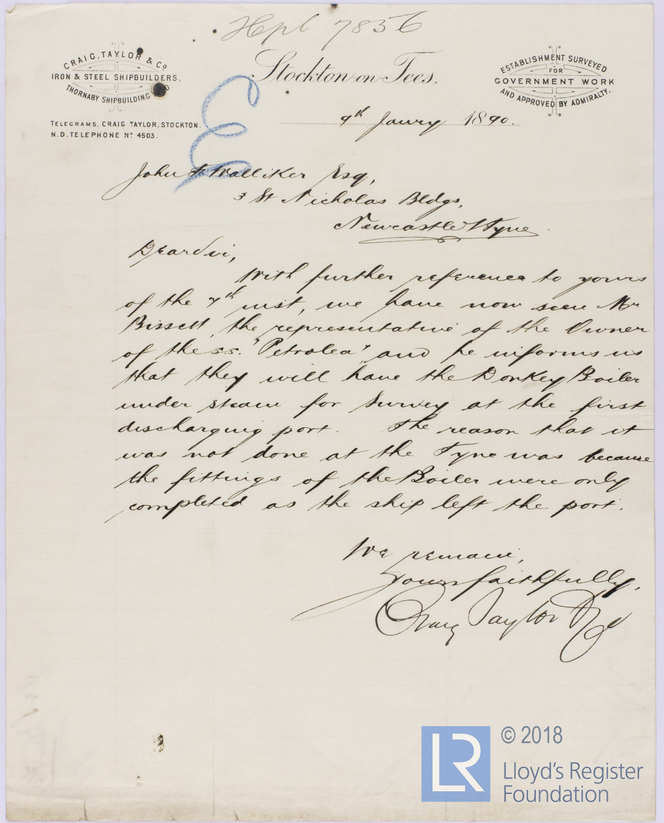 Hpl 7856
CRAIG, TAYLOR & Co
IRON & STEEL SHIPBUILDERS.
THORNABY SHIPBUILDING
TELEGRAMS, CRAIG TAYLOR, STOCKTON.
N.D. TELEPHONE No 4503.
Stockton on Tees.
ESTABLISHMENT SURVEYED
FOR
GOVERNMENT WORK
AND APPROVED BY ADMIRALTY.
9th Janry 1890.
John F Walliker Esq,
3 St Nicholas Bldgs,
Newcastle o/Tyne.
Dear Sir,
With further reference to yours
of the 7th inst, we have now seen Mr
Bissett, the representative of the Owner
of the s.s. "Petrolea" and he informs us
that they will have the Donkey Boiler
under steam for survey at the first
discharging port. The reason that it
was not done at the Tyne was because
the fittings of the Boiler were only
completed as the ship left the port.
We remain,
Yours faithfully,
Craig Taylor & Co
© 2018
LR
Lloyd's Register
Foundation